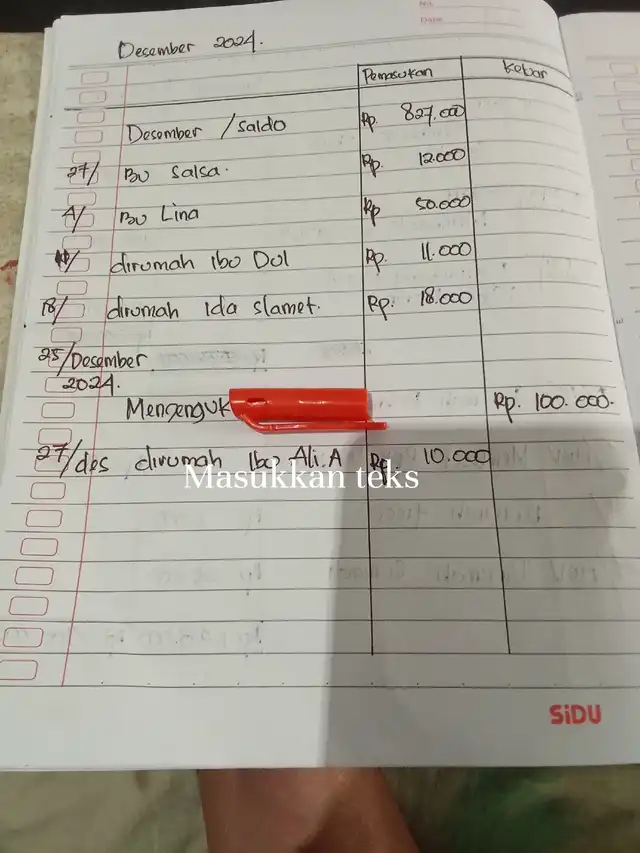 No.
Date
Desember 2024.
Pemasukan Kebar
Desember /saldo Rp. 827.000
27/ Bu Salsa. Rp. 12.000
4/ Bu Lina Rp 50.000
dirumah ibo Dol Rp. 11.000
18/ dirumah Ida Slamet. Rp. 18.000
25/Desember
2024.
Menjenguk Rp. 100.000.
27/des dirumah Ibo Ali.A Rp. 10.000
Masukkan teks
SiDU